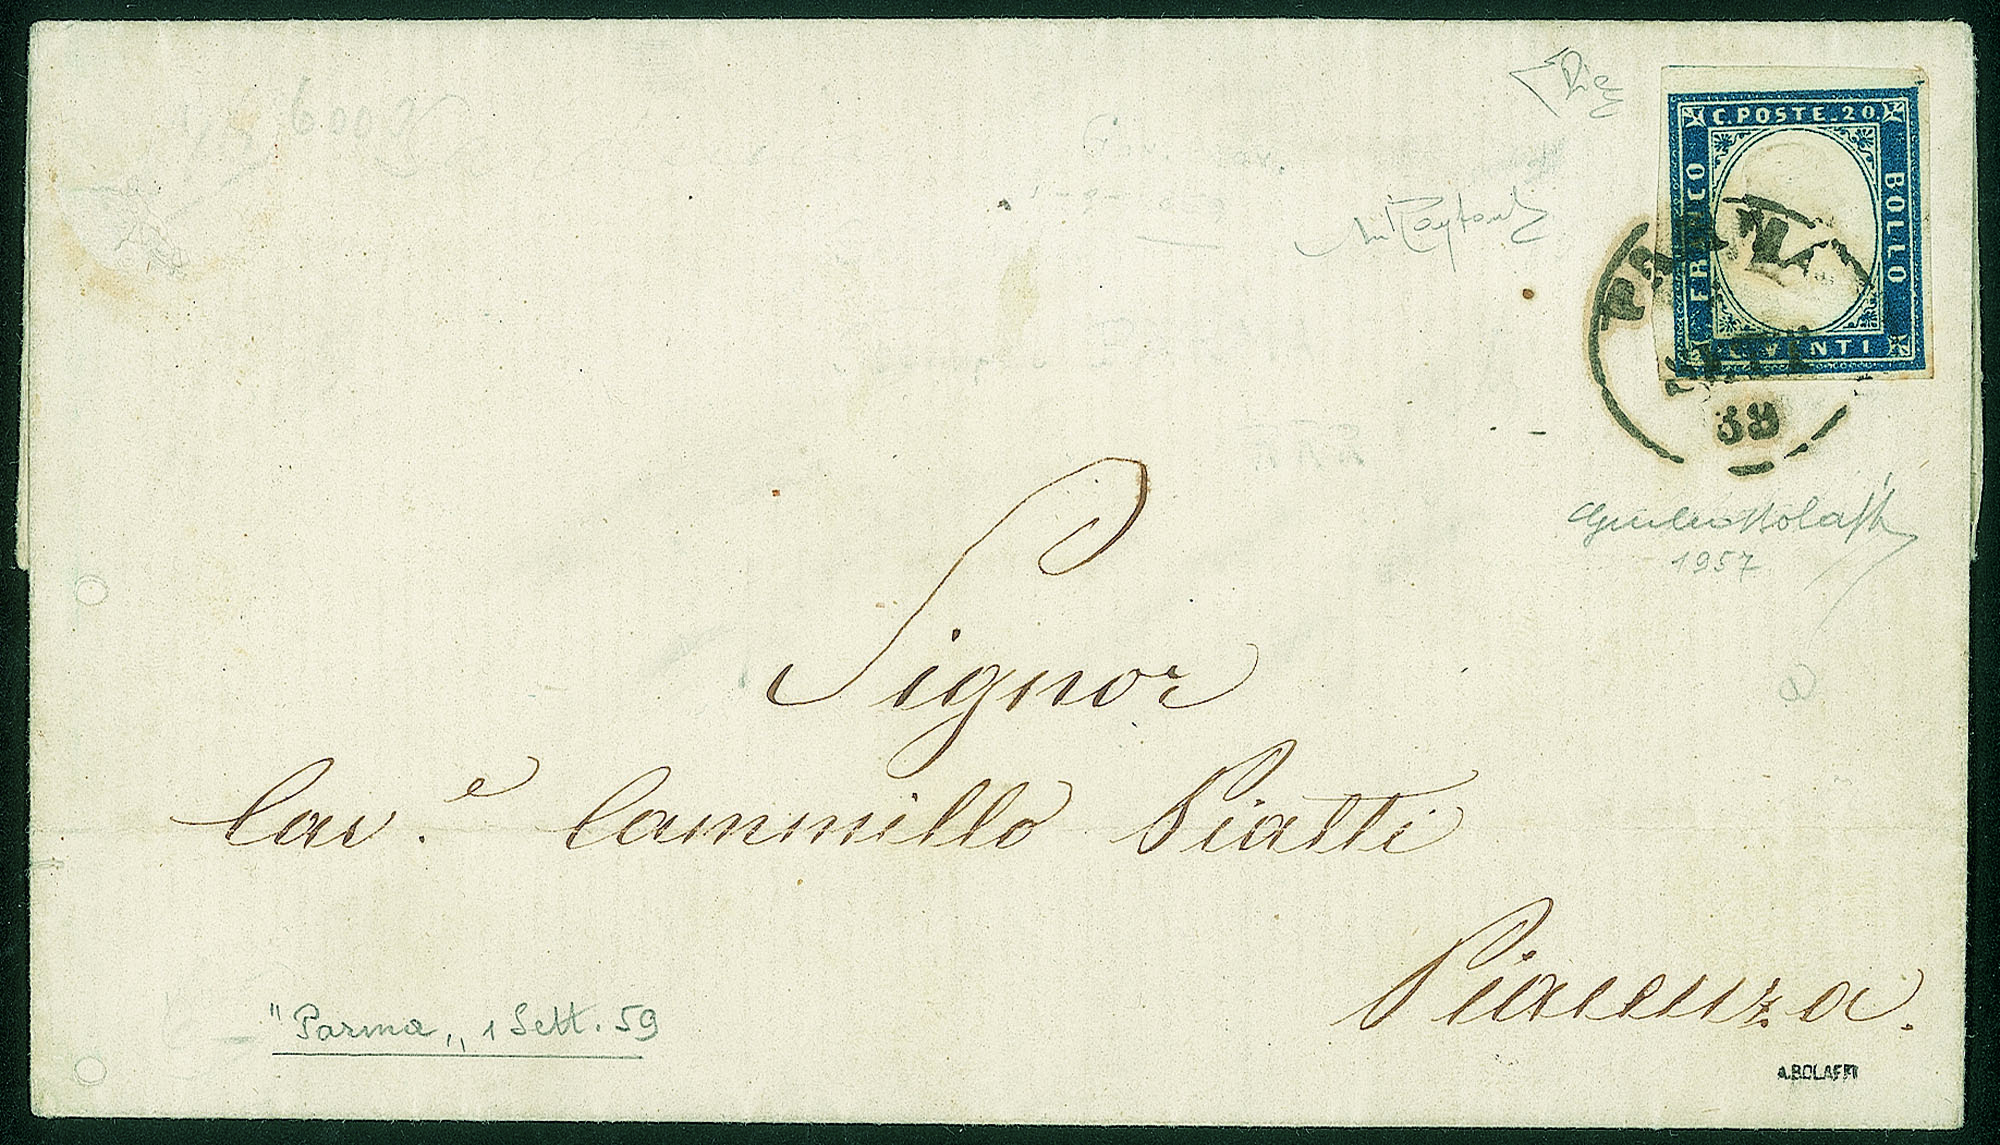 6000
C. POSTE. 20.
FRANCO
BOLLO
C. VENTI
PARMA
59
Giulio Bolaffi
1957
Signor
Cav.e Cammillo Piatti
Piacenza.
"Parma„ 1 Sett. 59
A.BOLAFFI